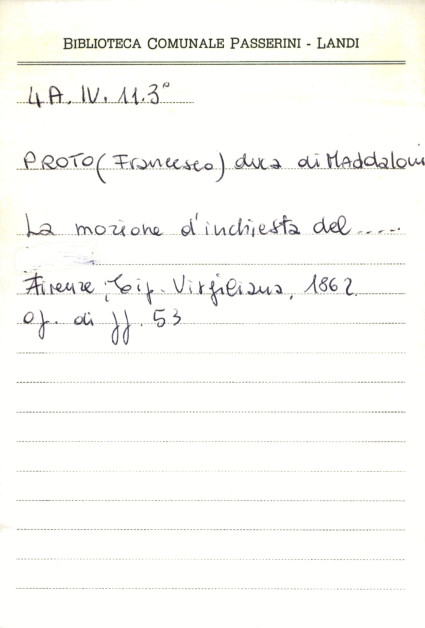 BIBLIOTECA COMUNALE PASSERINI - LANDI
4A. IV. 11.3°
PROTO (Francesco) duca di Maddaloni
La mozione d'inchiesta del .....
Firenze, Tip. Virgiliana, 1862.
op. di pp. 53